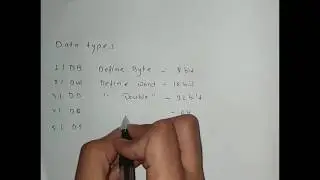 Data types
1) DB Define Byte - 8 bit
2) DW Define word - 16 bit
3) DD " Double " - 32 bit
4) DQ -
5) DT